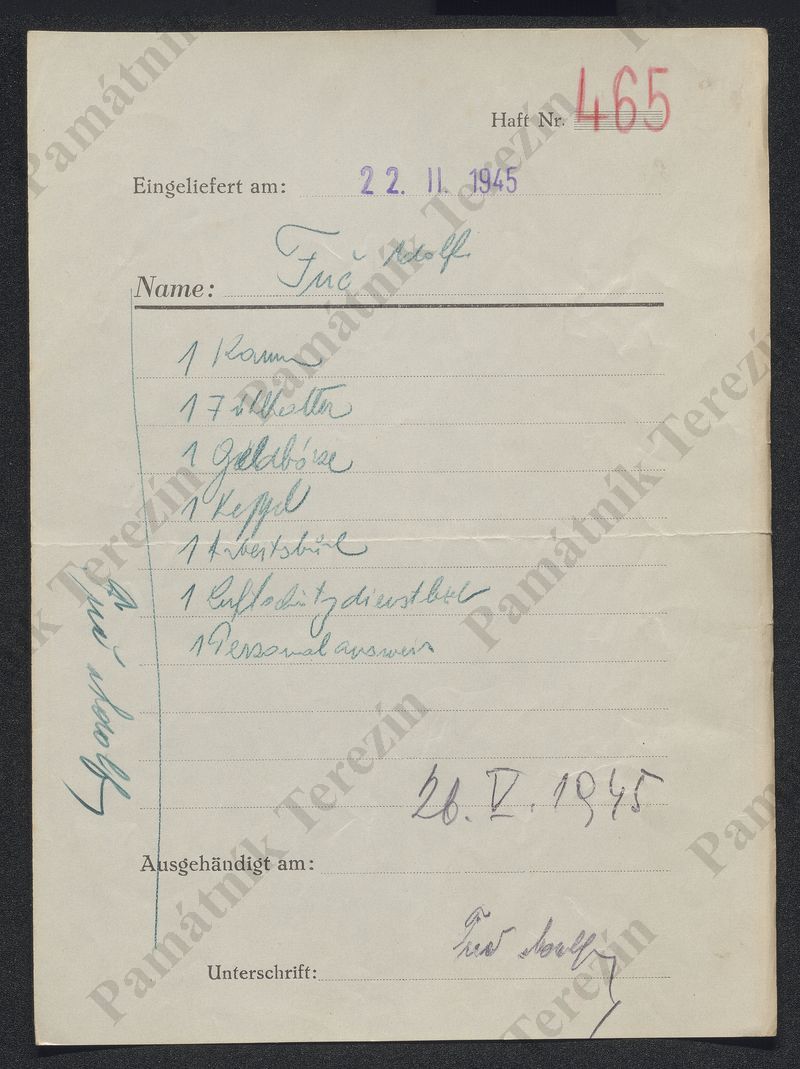 Haft Nr. 465
Eingeliefert am: 22. II. 1945
Name: Fuč Adolf
1 Kamm
1 Geldbörse
1 Keppel
1 Arbeitsbuch
1 Luftschutzdienstbuch
1 Personalausweis
Fuč Adolf
26. V. 1945
Ausgehändigt am:
Fuč Adolf
Unterschrift:
Památník Terezín